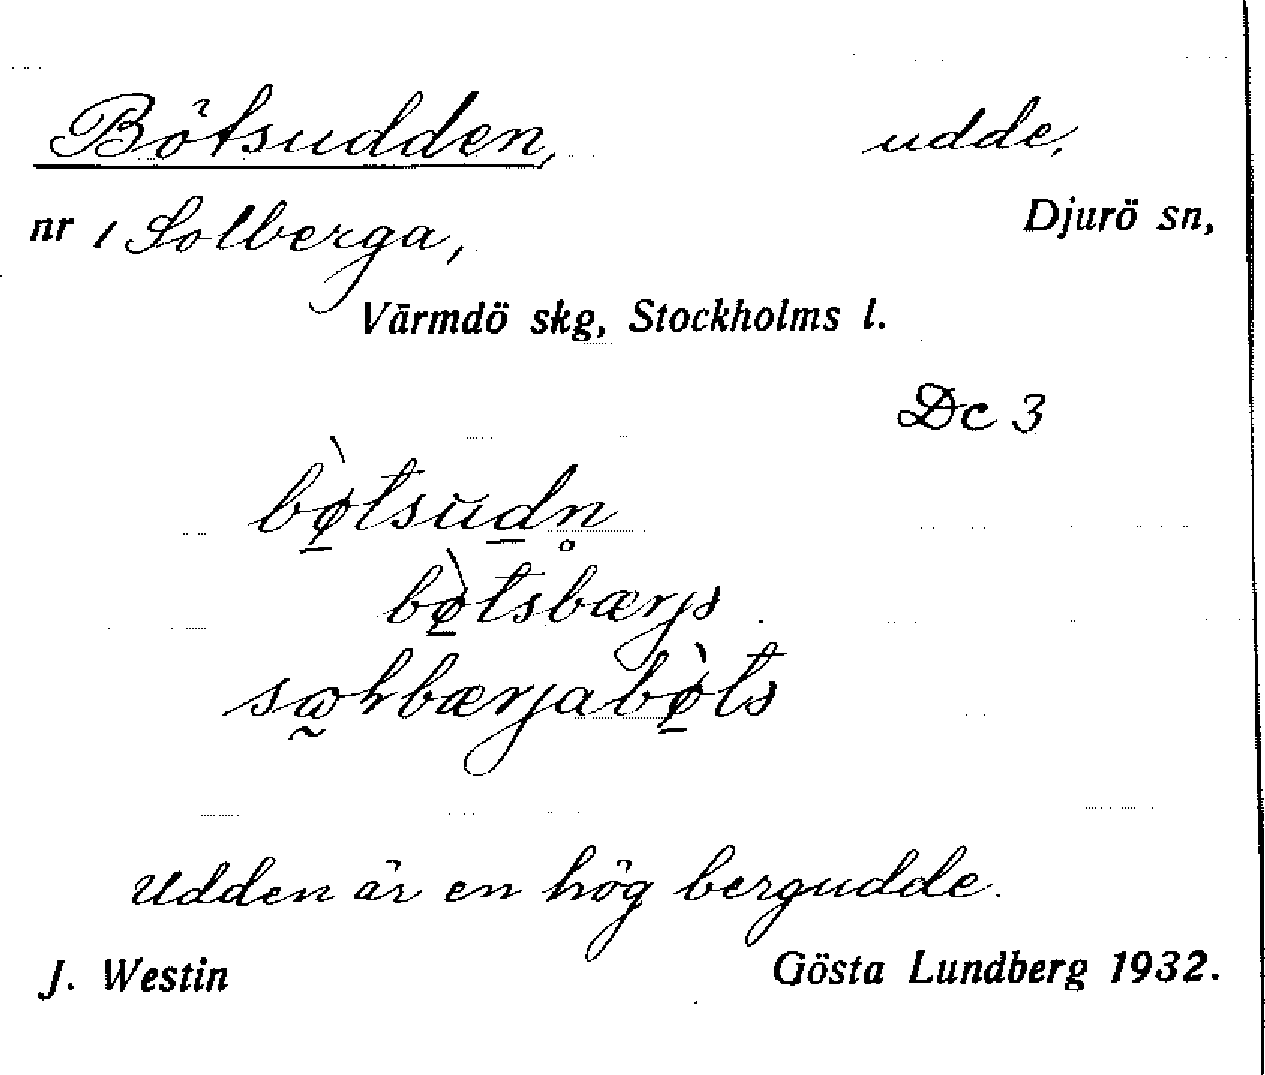 Bötsudden, udde,
nr 1 Solberga, Djurö sn,
Värmdö skg, Stockholms l.
Dc 3
bø̀tsudn̥
bø̀tsbærjs
bø̀ts
Udden är en hög bergudde.
J. Westin Gösta Lundberg 1932.